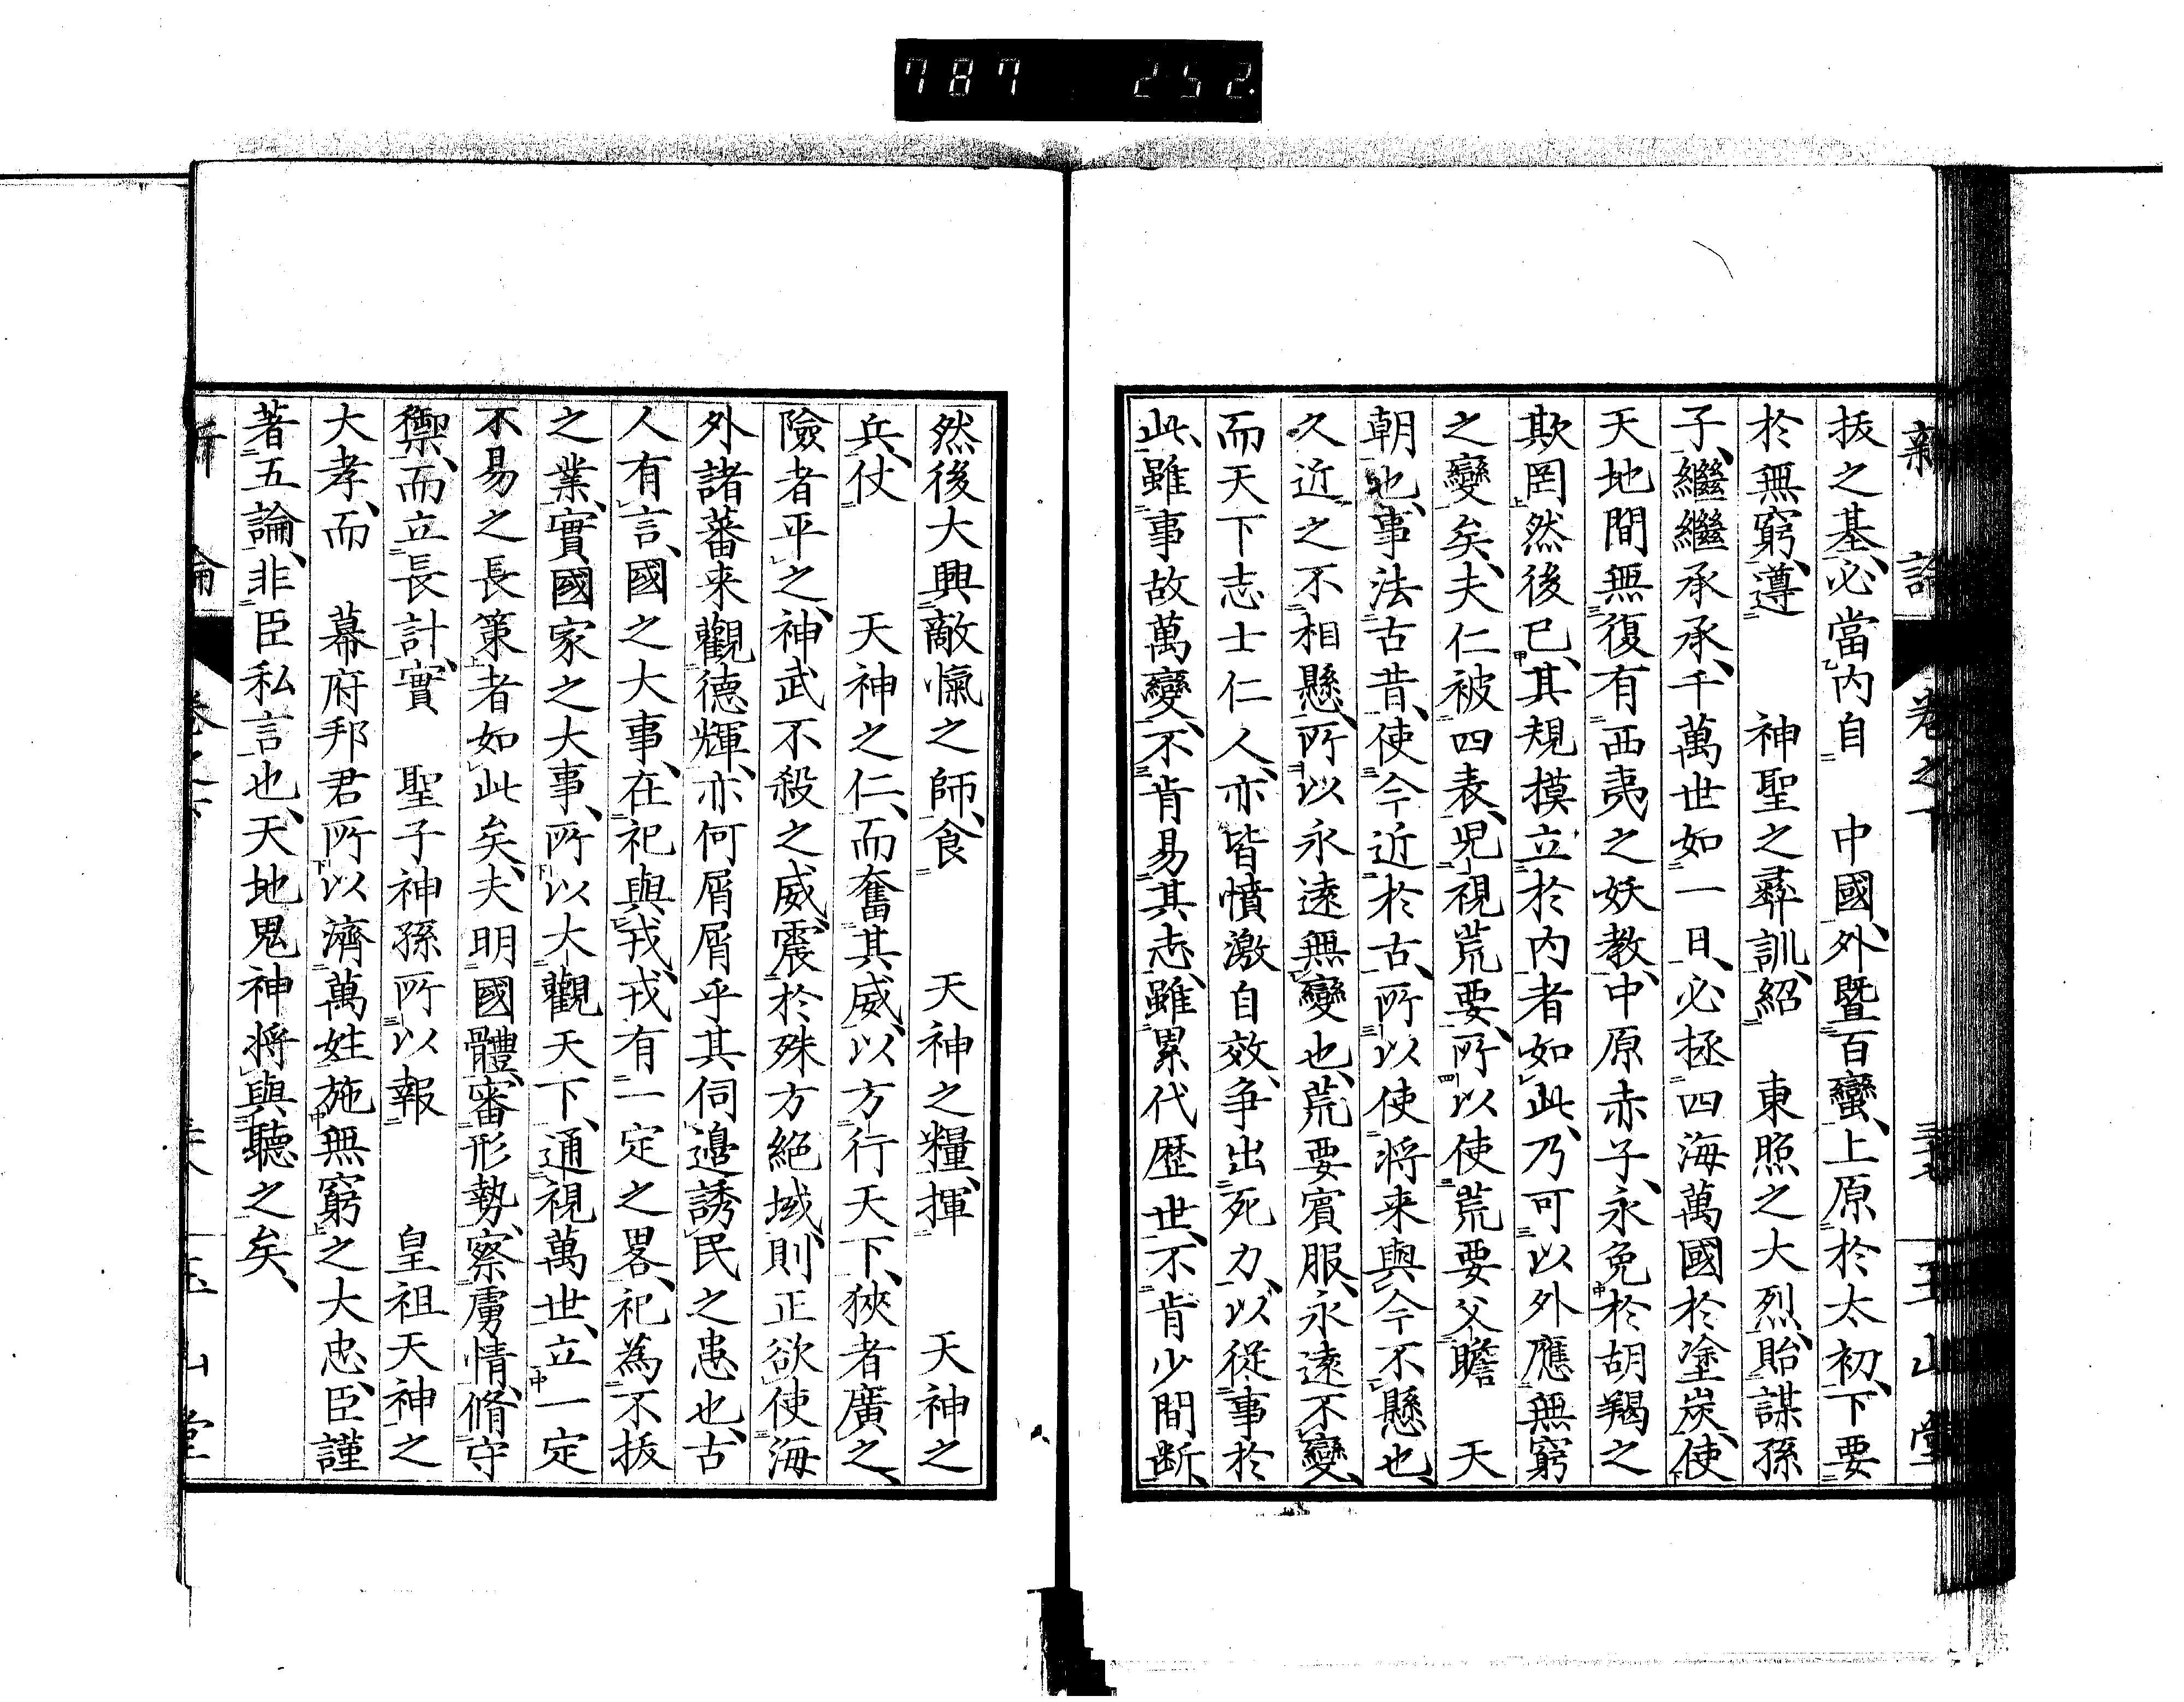 787 252.
新論 卷之下 玉山堂
拔之基、必當內自　中國、外曁百蠻、上原於太初、下要
於無窮、遵　神聖之彝訓、紹　東照之大烈、貽謀孫
子、繼繼承承、千萬世如一日、必拯四海萬國於塗炭、使
天地間無復有西夷之妖教、中原赤子、永免於胡羯之
欺罔然後已、其規模立於內者如此、乃可以外應無窮
之變矣、夫仁被四表、兒視荒要、所以使荒要父瞻　天
朝也、事法古昔、使今近於古、所以使將来與今不懸也、
久近之不相懸、所以永遠無變也、荒要賓服、永遠不變、
而天下志士仁人、亦皆憤激自效、争出死力、以從事於
此、雖事故萬變、不肯易其志、雖累代歷世、不肯少間斷、
然後大興敵愾之師、食　天神之糧、揮　天神之
兵、仗　天神之仁、而奮其威、以方行天下、狹者廣之、
險者平之、神武不殺之威、震於殊方絕域、則正欲使海
外諸蕃来觀德輝、亦何屑屑乎其伺邊誘民之患也、古
人有言、國之大事、在祀與戎、戎有一定之畧、祀爲不拔
之業、實國家之大事、所以大觀天下、通視萬世、立一定
不易之長策者如此矣、夫明國體、審形勢、察虜情、脩守
禦、而立長計、實　聖子神孫所以報　皇祖天神之
大孝、而　幕府邦君所以濟萬姓施無窮之大忠、臣謹
著五論、非臣私言也、天地鬼神將與聽之矣、